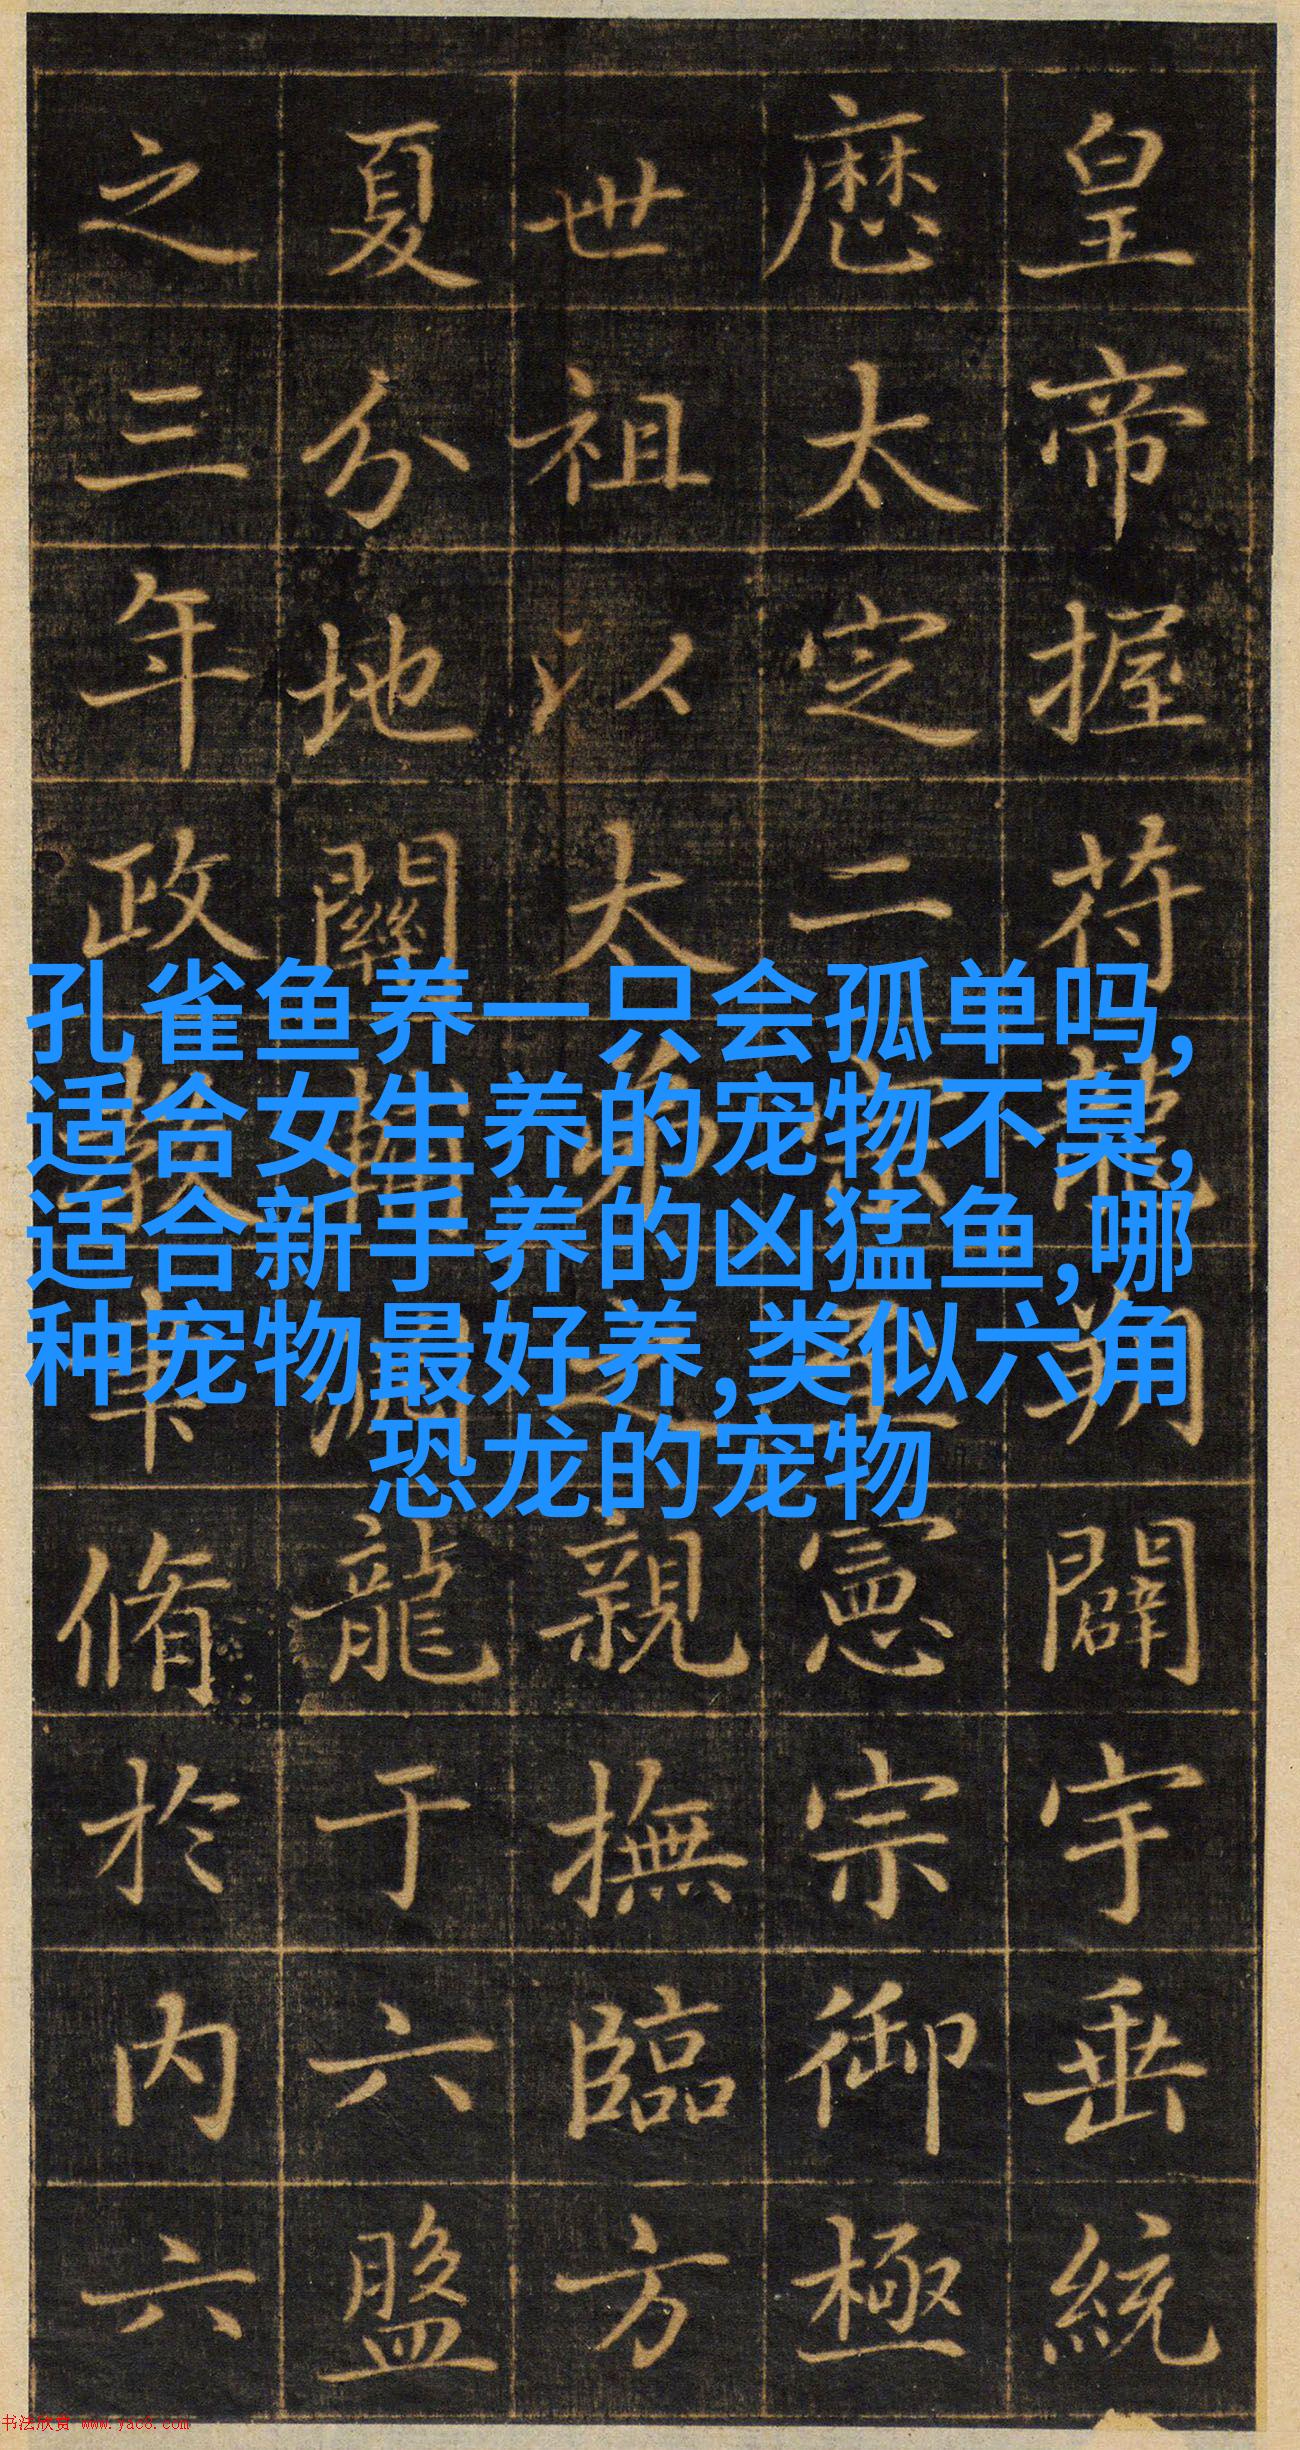 皇帝握符龍朔闢宇垂統
厯太定二憲宗御極
世祖以太弟之親撫臨方
夏分地關龍于六盤
之三年政教聿脩於内六
孔雀鱼养一只会孤单吗,
适合女生养的宠物不臭,
适合新手养的凶猛鱼,哪
种宠物最好养,类似六角
恐龙的宠物
书法欣赏 www.yac8.com